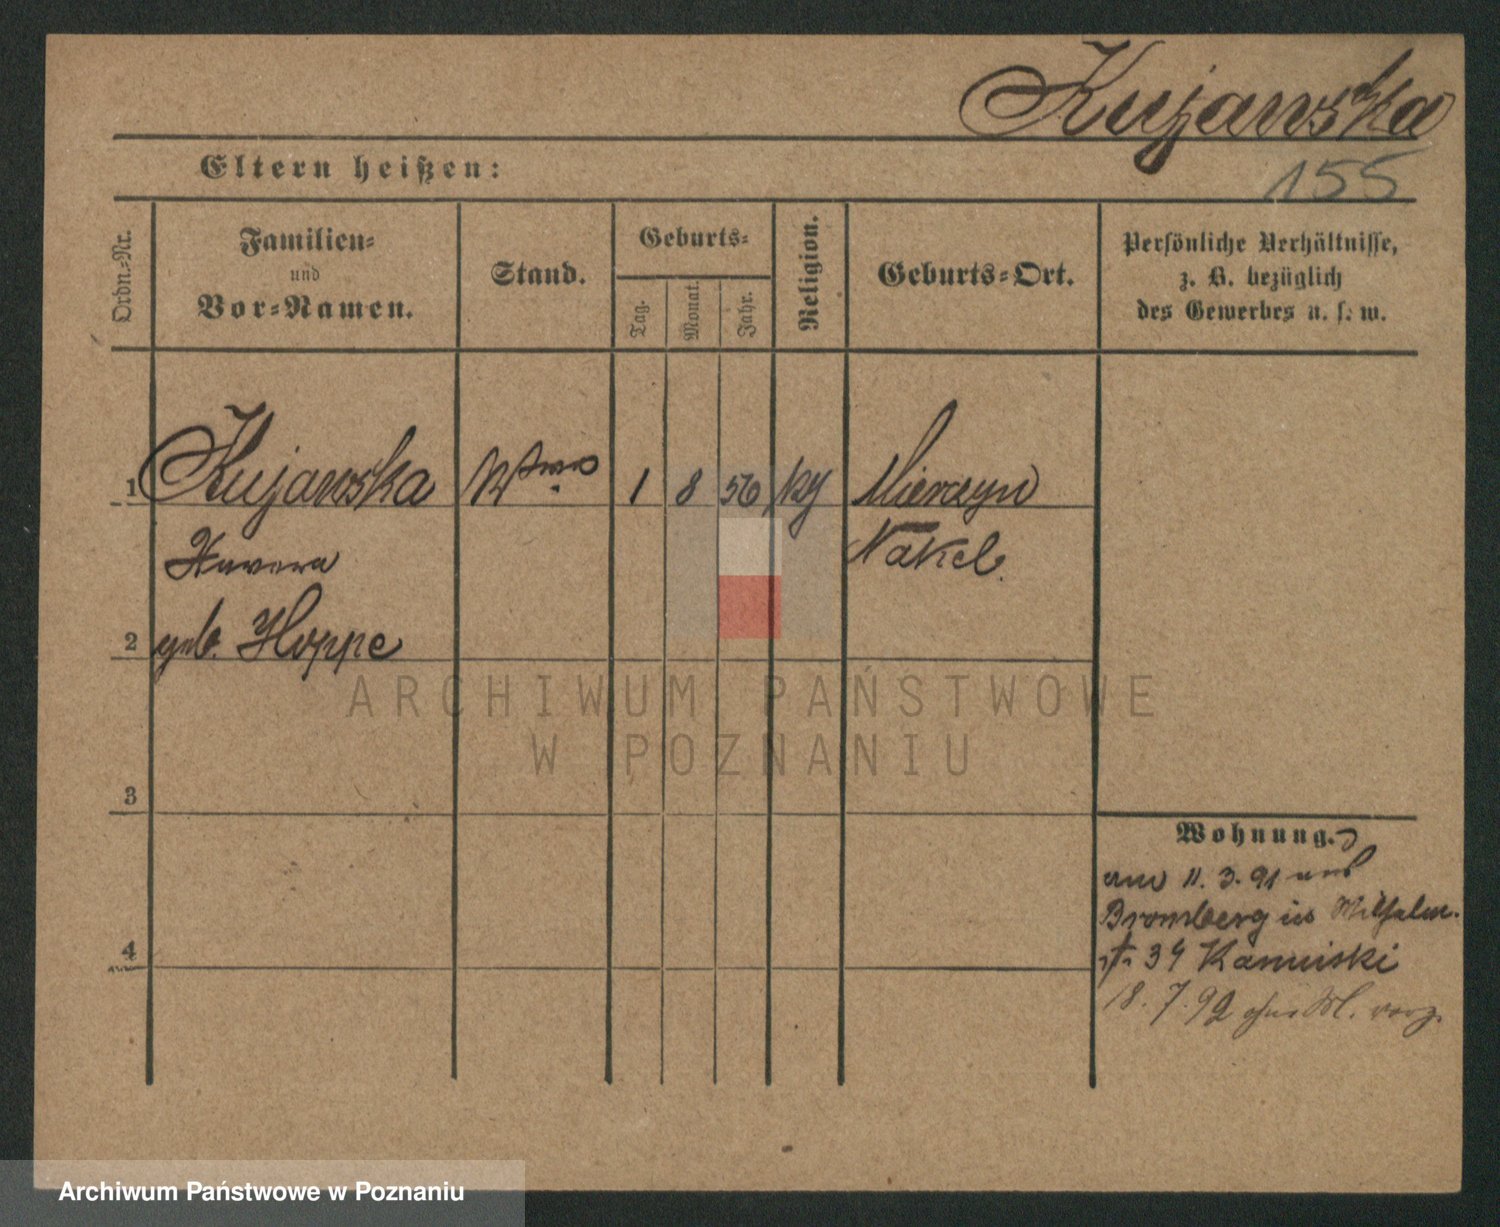 Kujawska
155
Eltern heißen:
Ordn.-Nr.
Familien-
und
Vor-Namen.
Stand.
Geburts-
Tag.
Monat.
Jahr.
Religion.
Geburts-Ort.
Persönliche Verhältnisse,
z. B. bezüglich
des Gewerbes u. s. w.
1 Kujawska 1 8 56 Mierczyn
Nakel.
2 geb. Hoppe
3
4
Wohnung.
am 11. 3. 91 aus
Bromberg in Wilhelm.
str 34 Kaminski
18. 7. 92 ohne M. verz.
ARCHIWUM PAŃSTWOWE
W POZNANIU
Archiwum Państwowe w Poznaniu